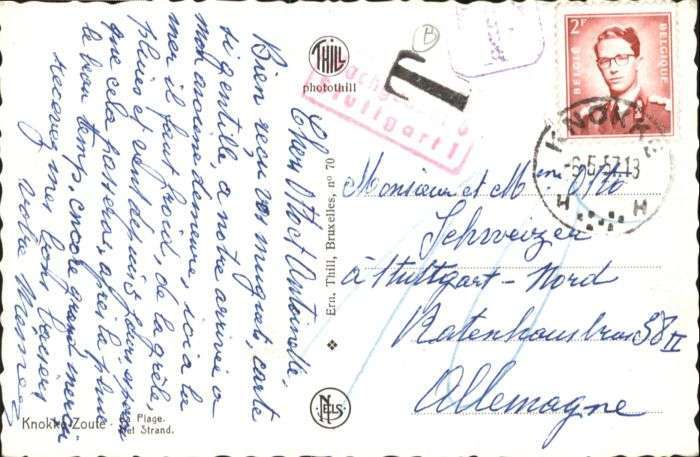 Cher Otto et Antoinette,
Bien reçu vos muguet, carte
si gentille a notre arrivée a
mon ancienne demeure, ici a la
mer il fait froid, de la grêle,
pluies et vent depuis jours, espérons
que cela passera, après la pluie
le beau temps, encore grand merci
recevez mes bons baisers
votre
THILL
photothill
Ern. Thill, Bruxelles, nº 70
NELS
Knokke-Zoute - La Plage.
Het Strand.
T
B
Stuttgart 1
2F
BELGIË BELGIQUE
KNOKKE
-6.5.57.13
H H
Monsieur et Mme Otto
Schweizer
à Stuttgart-Nord
58 II
Allemagne